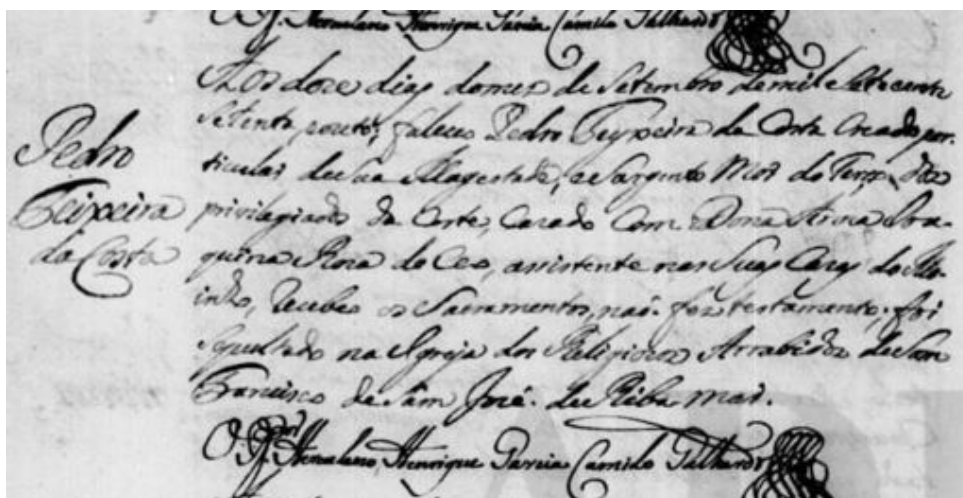 O P.or Herculano Henrique Garcia Camilo Galhardo
Aos doze dias do mez de Setembro de mil e Setecentos
Setenta e outo, faleceo Pedro Teyxeira da Costa Creado par-
ticular de Sua Magestade, e Sargento Mor do Terço dos
privilegiados da Corte, Cazado Com Dona Anna Joa-
quina Roza do Ceo, assistente nas Suas Cazas do Mo-
inho, Recebeo os Sacramentos, naõ fez testamento, foi
Sepultado na Igreja dos Religiozos Arrabidos de Sam
Francisco de Sam José de Riba mar.
O P.or Herculano Henrique Garcia Camilo Galhardo
Pedro
Teixeira
da Costa